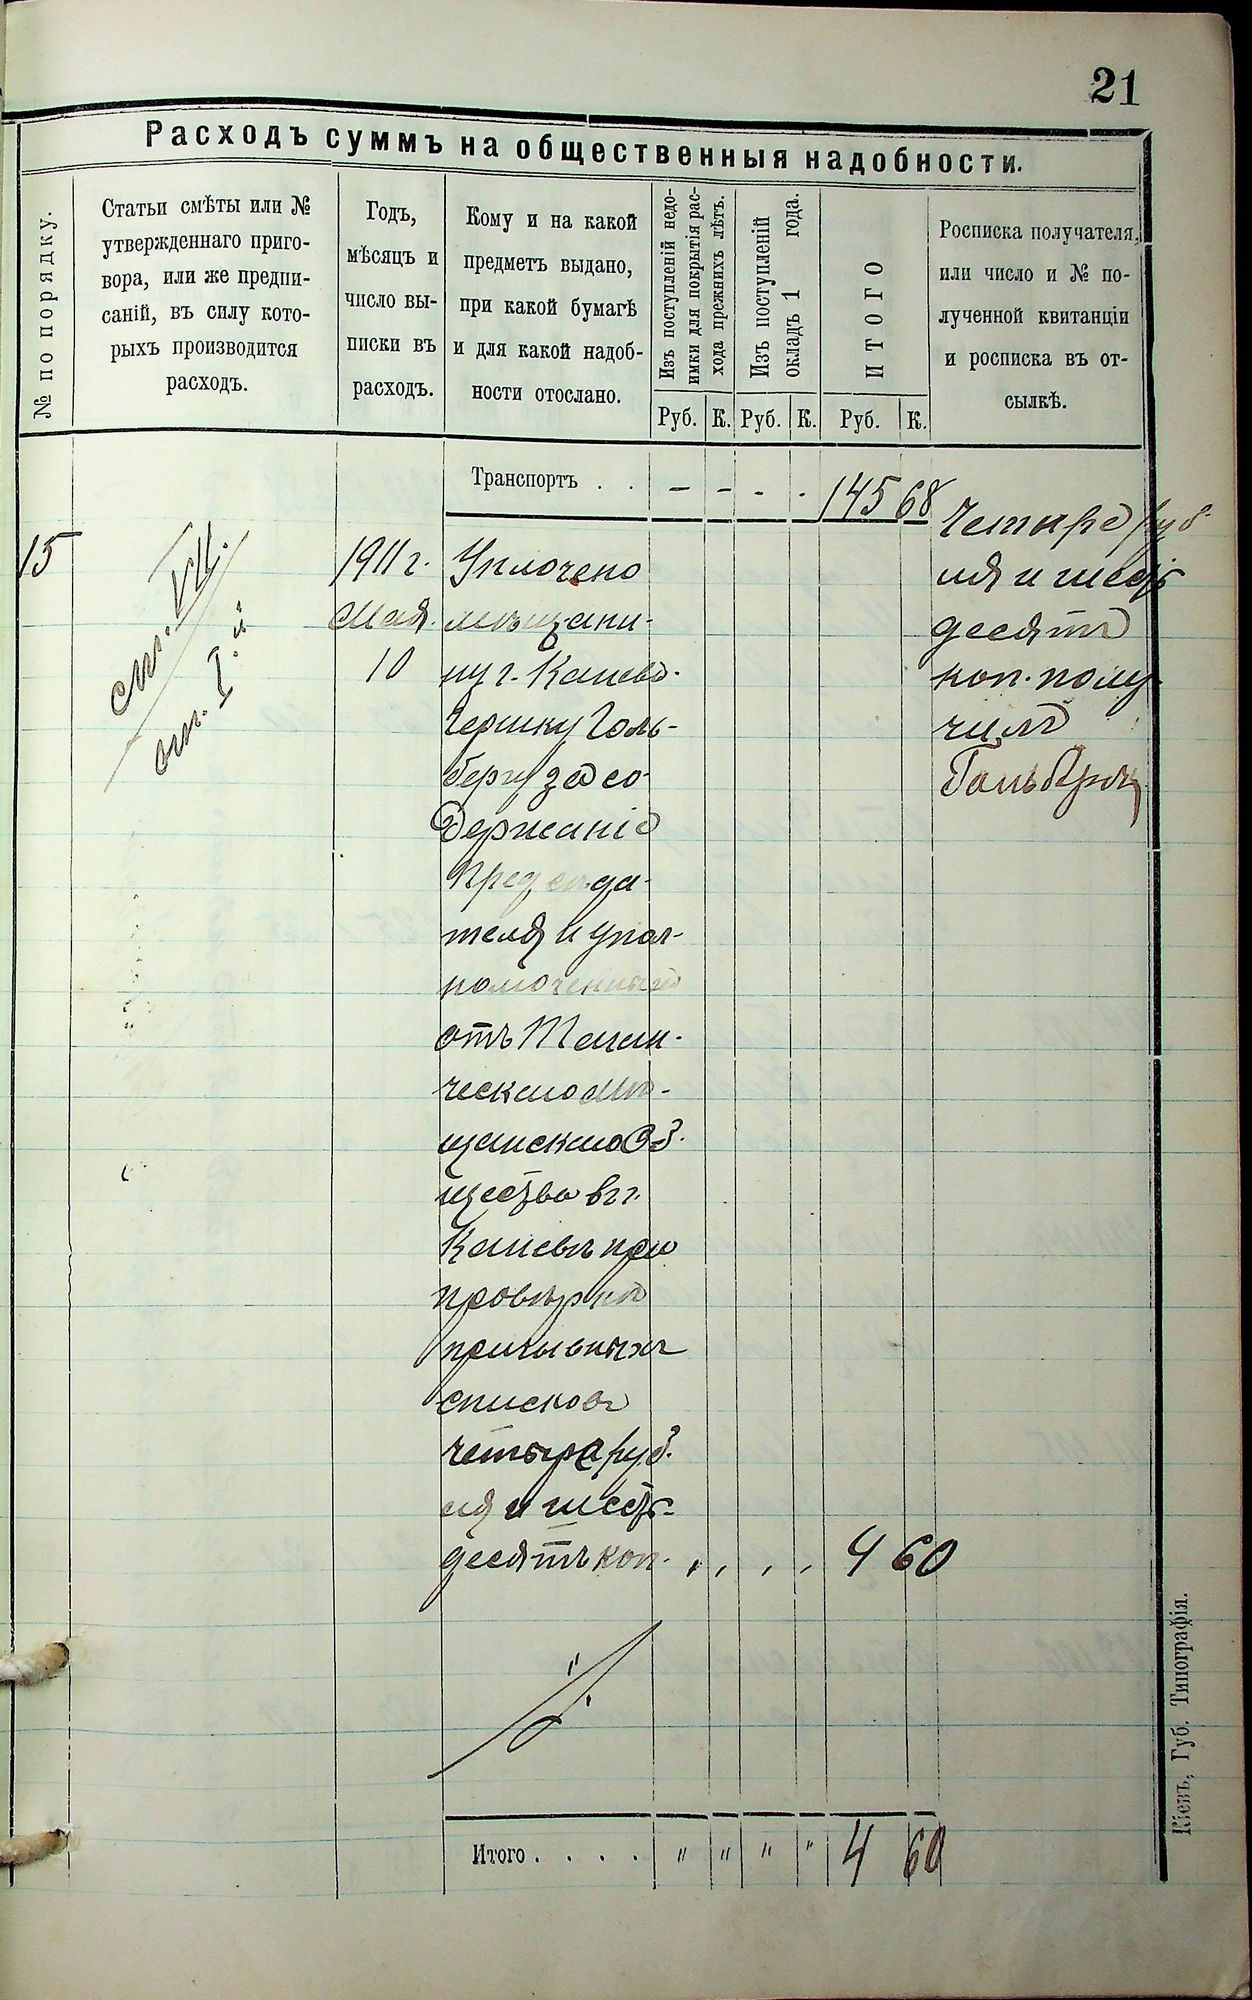 21
Расходъ суммъ на общественныя надобности.
№ по порядку.
Статьи смѣты или №
утвержденнаго приго-
вора, или же предпи-
саній, въ силу кото-
рыхъ производится
расходъ.
Годъ,
мѣсяцъ и
число вы-
писки въ
расходъ.
Кому и на какой
предметъ выдано,
при какой бумагѣ
и для какой надоб-
ности отослано.
Изъ поступленій недо-
имки для покрытія рас-
хода прежнихъ лѣтъ.
Изъ поступленій
окладъ 1 года.
ИТОГО
Руб. К. Руб. К. Руб. К.
Росписка получателя,
или число и № по-
лученной квитанціи
и росписка въ от-
сылкѣ.
Транспортъ . . – – – - 145 68
15
ст. VII.
от. I.й
1911 г.
Мая
10
Уплочено
мѣщани-
ну г. Канева
Гершку Голь-
бергу за со-
держаніе
Председа-
теля и упол-
номоченный
отъ
ческаго Мѣ-
щанскаго Об-
щества въ г.
Каневѣ при
провѣркѣ
призывныхъ
списковъ
четыре руб-
ля и шесть-
десятъ коп. 4 60
Четыре руб-
ля и шесть
десятъ
коп. полу-
чилъ
Итого . . . . " " " " 4 60
Кіевъ, Губ. Типографія.